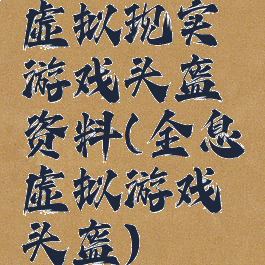 虚拟现实
游戏头盔
资料(全息
虚拟游戏
头盔)